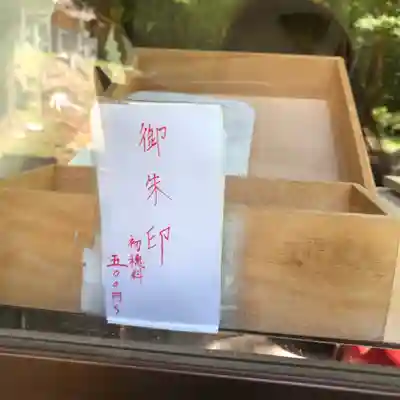 御朱印
初穂料
五〇〇円〜